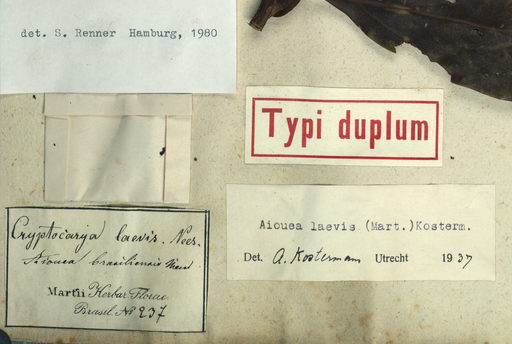 det. S. Renner Hamburg, 1980
Typi duplum
Cryptocarija laevis. Nees.
Aiouea brasiliensis Meisn
Martii Herbar. Florae
Brasil. No 237
Aiouea laevis (Mart.)Kosterm.
Det. A. Kostermans Utrecht 1937